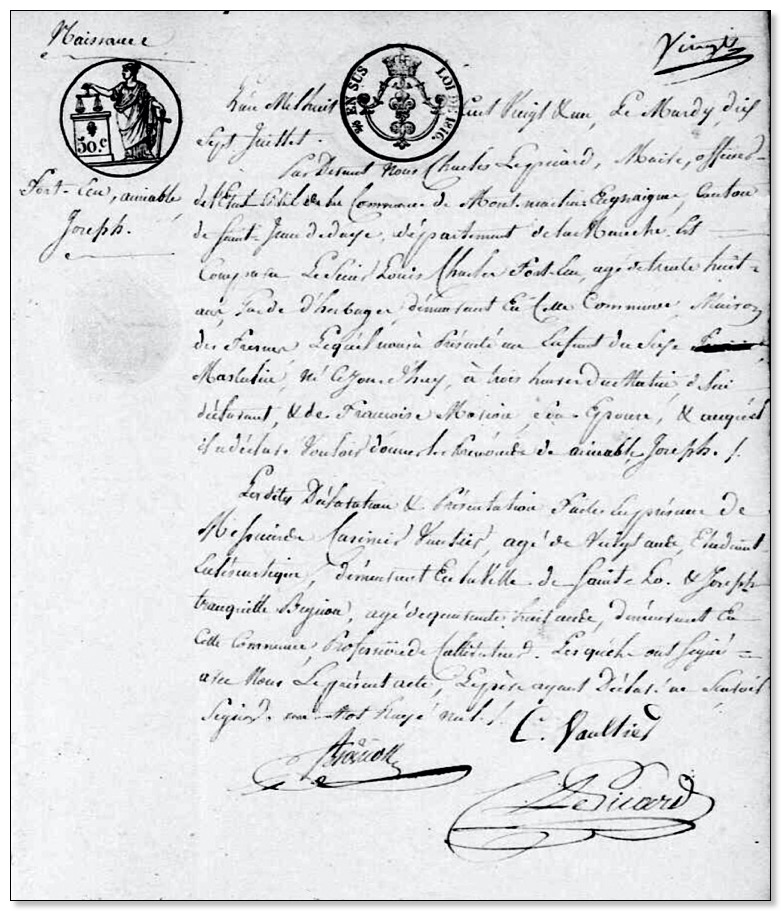 Naissance
Vingt
50.c
EN SUS
LOI DE 1816.
Fort-Leu, aimable
Joseph.
L'an Mil huit Cent Vingt & un, Le Mardy, dix
Sept Juillet.
Par Devant Nous Charles Lepicard, Maire, officier
de l'Etat Civil de la Commune de Montmartin Engraigne, Canton
de Saint-Jean de daye, département de la Manche Est
Comparu Le Sieur Louis Charles Fort-Leu, agé de trente huit
ans, Garde d'herbages, demeurant En Cette Commune,
des Fresnes, Lequel nous a Présenté un Enfant du Sexe
Masculin, né Ce Jour d'huy, à trois heures du Matin, de lui
déclarant, & de Francoise Son Epouse, & auquel
il a déclaré Vouloir donner les Prénoms de aimable, Joseph.
Les dites Déclaration & Présentation Faites En présence de
Casimir Vaultier, agé de Vingt ans, Etudiant
demeurant En la Ville de Saint-Lo. & Joseph
tranquille agé de quarante huit ans, demeurant En
Cette Commune, Lesquels ont Signé
avec Nous Le présent acte, Le père ayant Déclaré ne Savoir
Signer. un Mot Rayé nul.
C. Vaultier
Lepicard